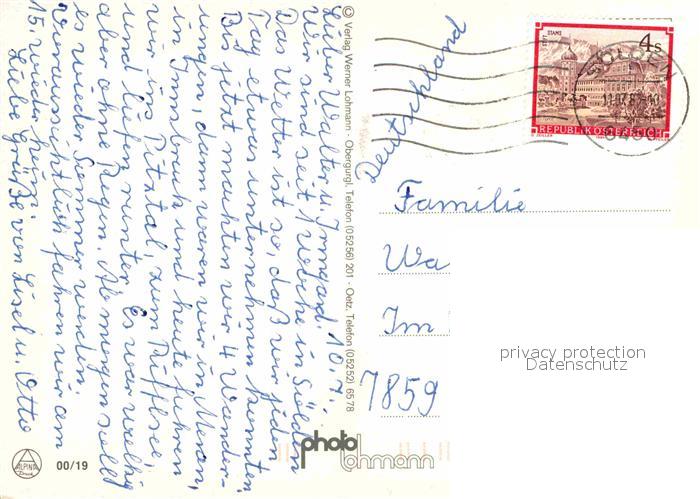 Lieber Walter u. Irmgard! 10.7.
Wir sind seit 1 Woche in Sölden
Das Wetter ist so, daß wir jeden
Tag etwas unternehmen konnten.
Bis jetzt machten wir 4 Wander-
ungen, dann waren wir in Meran,
in Innsbruck und heute fuhren
wir ins Pitztal, zum Rifflsee,
und liefen runter. Es war wolkig
aber ohne Regen. Ab morgen soll
es wieder Sommer werden.
Voraussichtlich fahren wir am
15. wieder heim.
Liebe Grüße von Lisel u. Otto
ALPINA
Druck
00/19
© Verlag Werner Lohmann · Obergurgl, Telefon (05256) 201 · Oetz, Telefon (05252) 6578
photo
lohmann
Deutschland
STIFT STAMS
4s
REPUBLIK ÖSTERREICH
SÖLDEN
Familie
Wa
Im
7859
privacy protection
Datenschutz